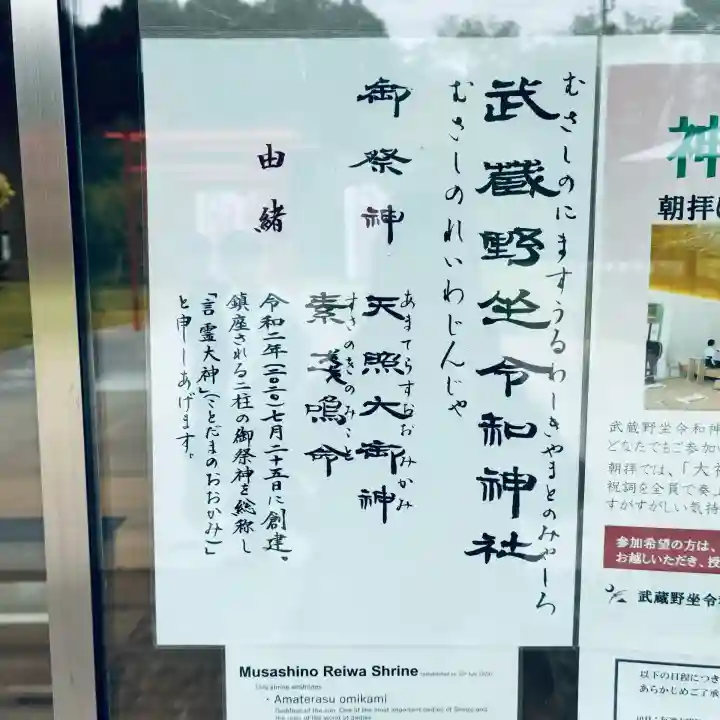 むさしのにますうるわしきやまとのみやしろ
武蔵野坐令和神社
むさしのれいわじんじゃ
御祭神
あまてらすおおみかみ
天照大御神
すさのをのみこと
素戔嗚命
由緒
令和二年(二〇二〇)七月二十五日に創建。
鎮座される二柱の御祭神を総称し
「言霊大神」(ことだまのおおかみ)」
と申しあげます。
神
朝拝
武蔵野坐令和神
どなたでもご参加い
朝拝では、「大
祝詞を全員で奏上
すがすがしい気持
参加希望の方は、
お越しいただき、授
武蔵野坐令
Musashino Reiwa Shrine
・Amaterasu omikami
以下の日程につき
あらかじめご了承